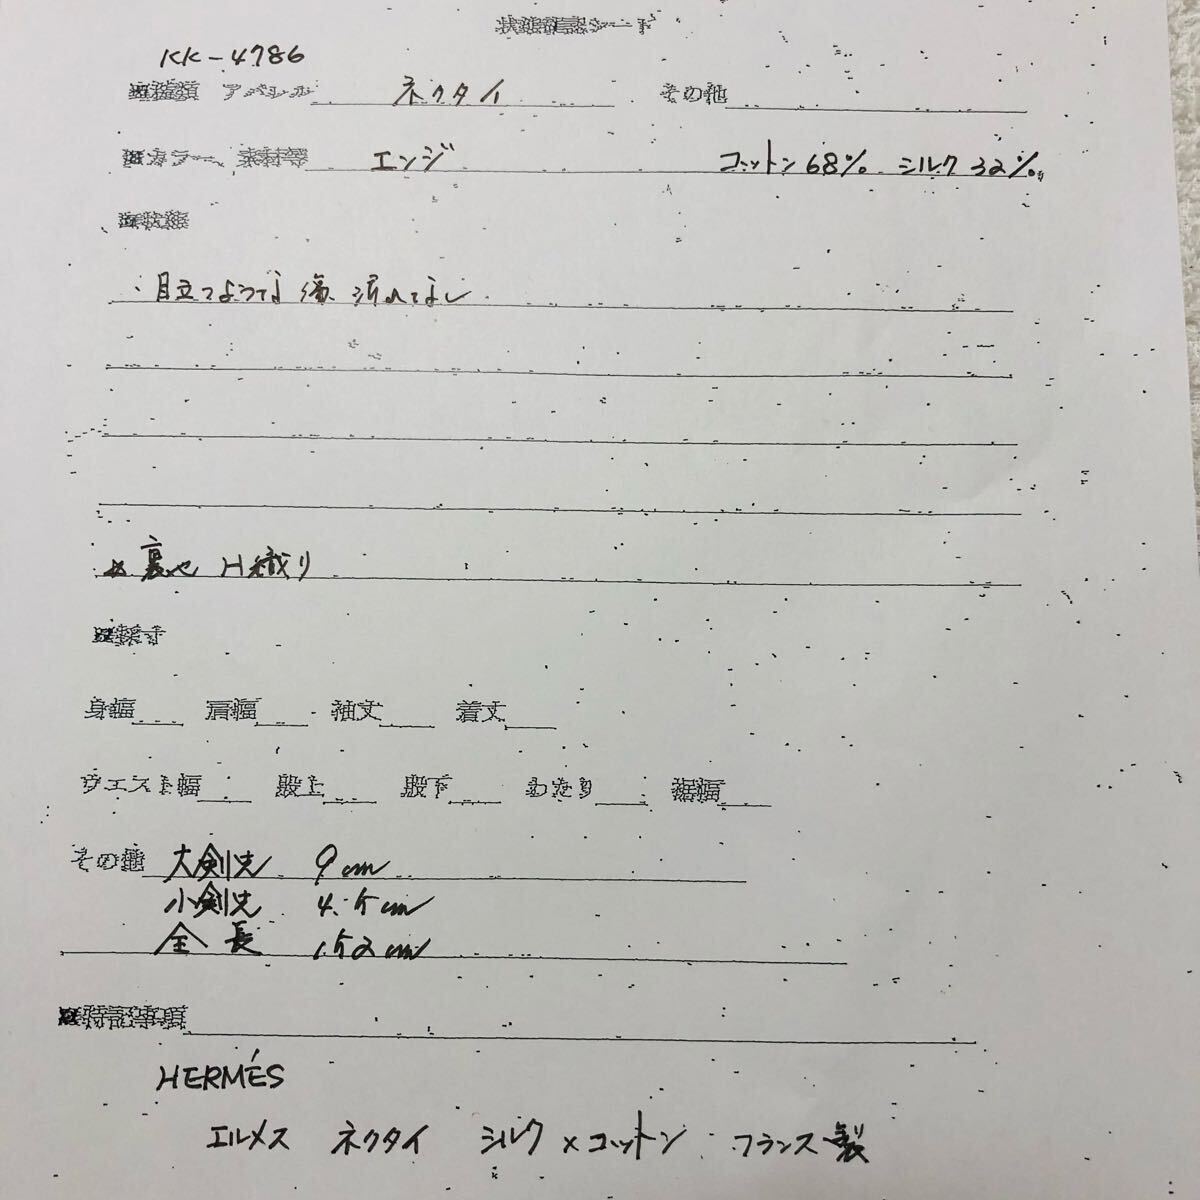 状態確認シート
KK-4786
■種類 アパレル ネクタイ その他
■カラー、素材等 エンジ コットン68% シルク32%
■状態
・目立つような傷、汚れなし
裏地 H織り
■採寸
身幅 肩幅 袖丈 着丈
ウエスト幅 股上 股下 わたり 裾幅
その他 大剣先 9cm
小剣先 4.5cm
全長 152cm
■特記事項
HERMÉS
エルメス ネクタイ シルク×コットン フランス製